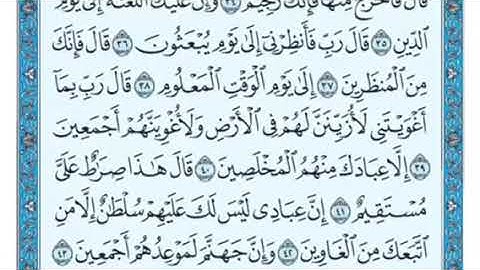 قَالَ فَٱخۡرُجۡ مِنۡهَا فَإِنَّكَ رَجِيمٞ ٣٤ وَإِنَّ عَلَيۡكَ ٱللَّعۡنَةَ إِلَىٰ يَوۡمِ
ٱلدِّينِ ٣٥ قَالَ رَبِّ فَأَنظِرۡنِيٓ إِلَىٰ يَوۡمِ يُبۡعَثُونَ ٣٦ قَالَ فَإِنَّكَ
مِنَ ٱلۡمُنظَرِينَ ٣٧ إِلَىٰ يَوۡمِ ٱلۡوَقۡتِ ٱلۡمَعۡلُومِ ٣٨ قَالَ رَبِّ بِمَآ
أَغۡوَيۡتَنِي لَأُزَيِّنَنَّ لَهُمۡ فِي ٱلۡأَرۡضِ وَلَأُغۡوِيَنَّهُمۡ أَجۡمَعِينَ
٣٩ إِلَّا عِبَادَكَ مِنۡهُمُ ٱلۡمُخۡلَصِينَ ٤٠ قَالَ هَٰذَا صِرَٰطٌ عَلَيَّ
مُسۡتَقِيمٌ ٤١ إِنَّ عِبَادِي لَيۡسَ لَكَ عَلَيۡهِمۡ سُلۡطَٰنٌ إِلَّا مَنِ
ٱتَّبَعَكَ مِنَ ٱلۡغَاوِينَ ٤٢ وَإِنَّ جَهَنَّمَ لَمَوۡعِدُهُمۡ أَجۡمَعِينَ ٤٣